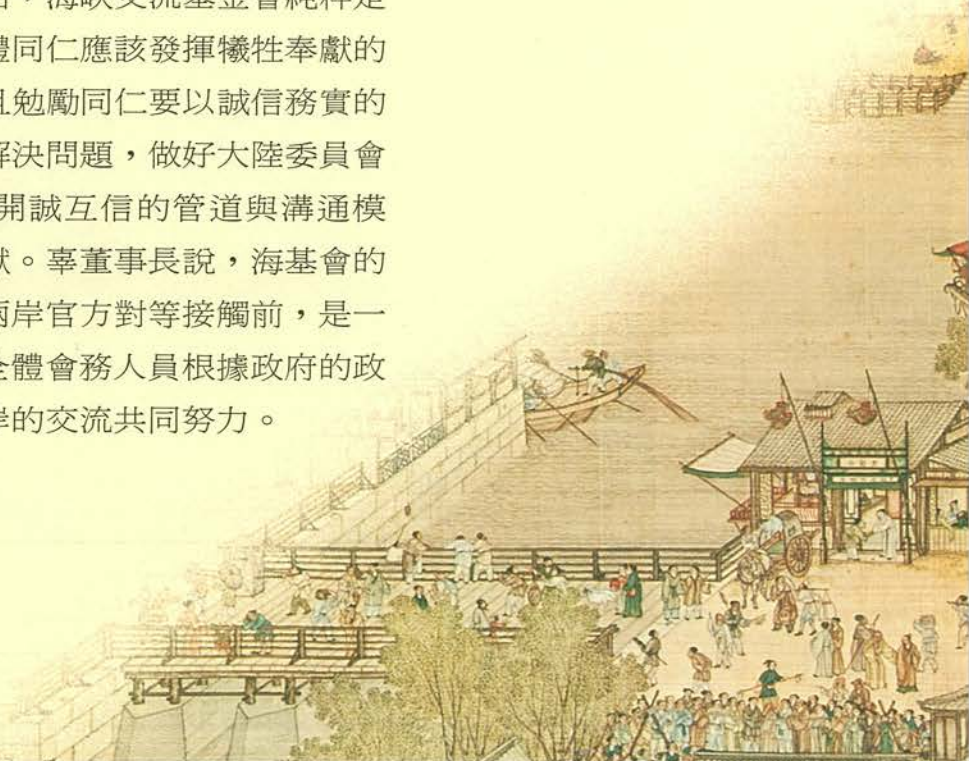 海峽交流基金會純粹是
體同仁應該發揮犧牲奉獻的
且勉勵同仁要以誠信務實的
解決問題，做好大陸委員會
開誠互信的管道與溝通模
獻。辜董事長說，海基會的
兩岸官方對等接觸前，是一
全體會務人員根據政府的政
岸的交流共同努力。